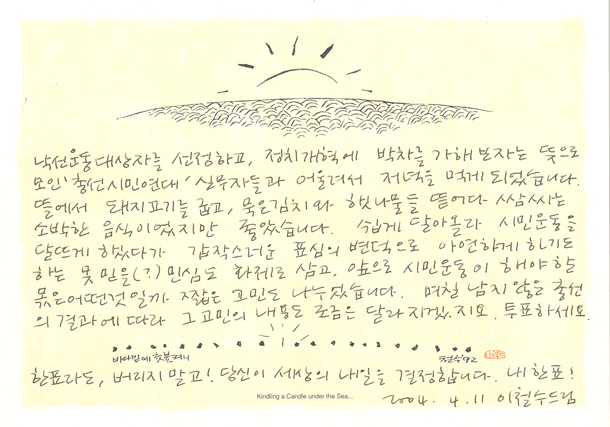 낙선운동대상자를 선정하고, 정치개혁에 박차를 가해보자는 뜻으로
모인 '총선시민연대' 실무자들과 어울려서 저녁을 먹게 되었습니다.
뜰에서 돼지고기를 굽고, 묵은김치와 햇나물들 뜯어다 쌈싸는
소박한 음식이었지만 좋았습니다. 쉽게 달아올라 시민운동을
달뜨게 했다가 갑작스러운 표심의 변덕으로 아연하게 하기도
하는 못 믿을(?) 민심도 화제로 삼고, 앞으로 시민운동이 해야 할
몫은 어떤것일까 고민도 나누었습니다. 며칠 남지 않은 총선
의 결과에 따라 그 고민의 내용도 조금은 달라지겠지요. 투표하세요.
바다밑에 촛불켜니 철수'92
한표라도, 버리지 말고! 당신이 세상의 내일을 결정합니다. 내 한표!
Kindling a Candle under the Sea...
2004. 4. 11 이철수드림